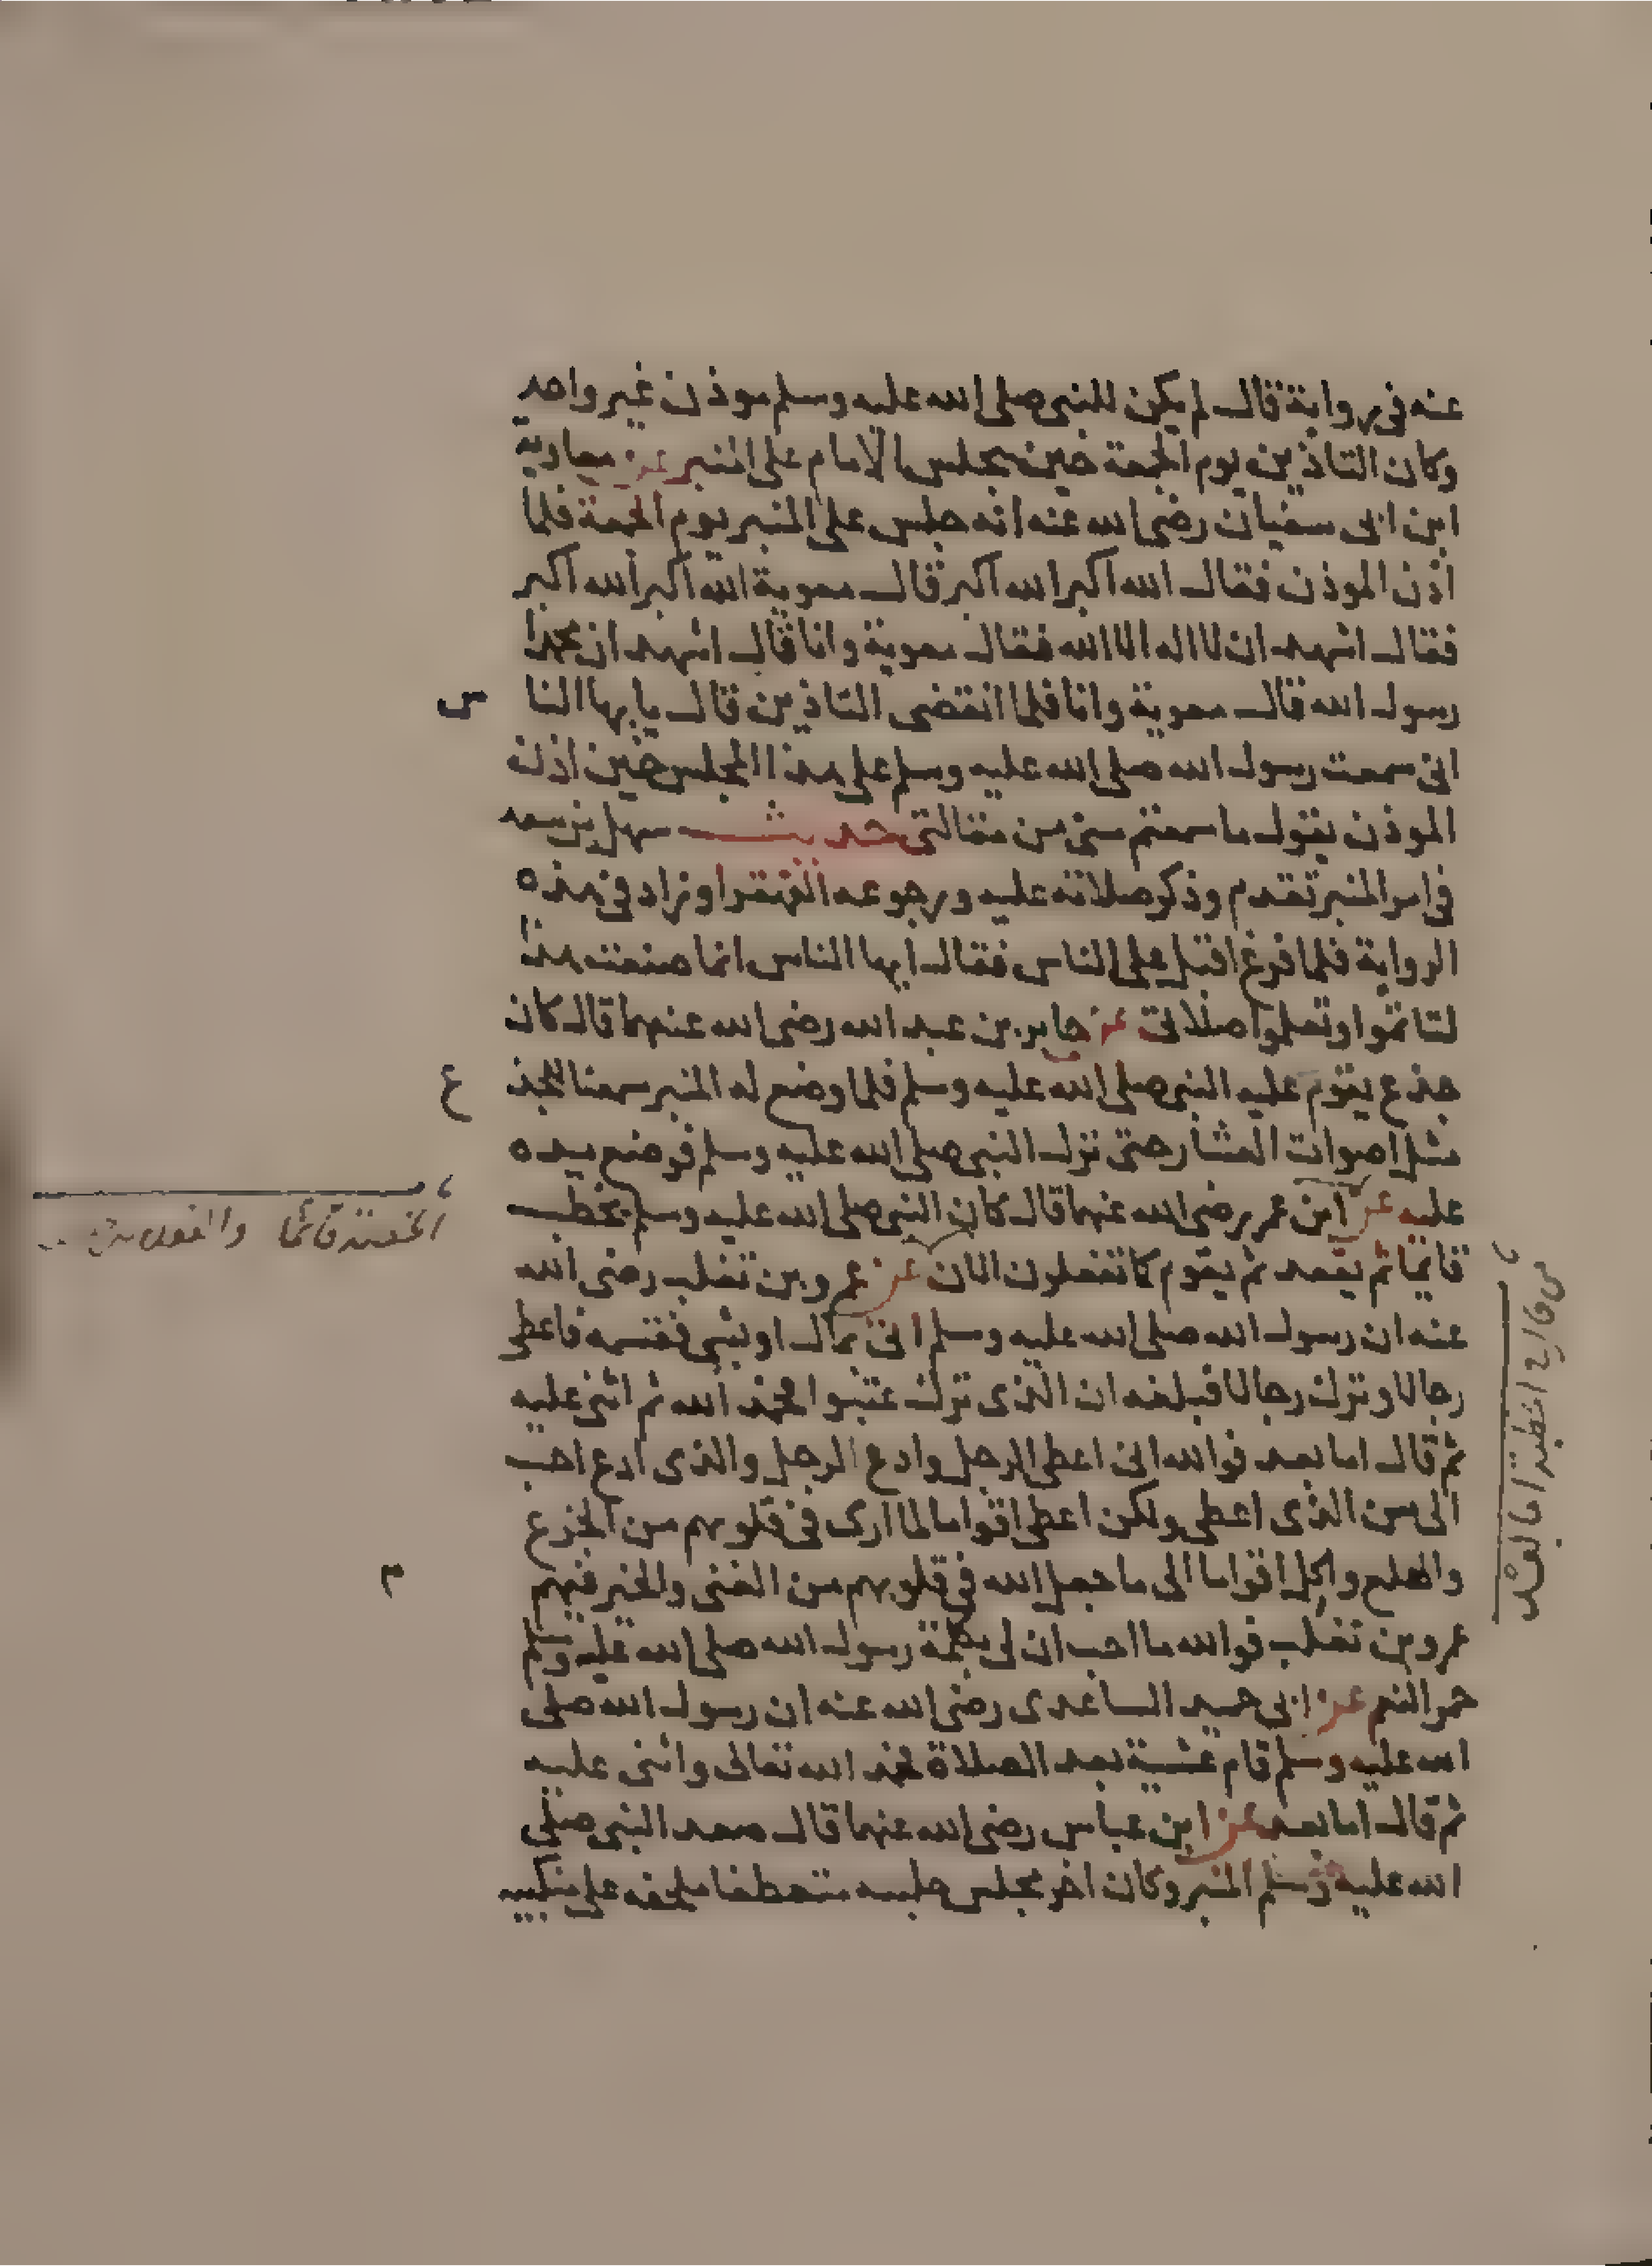 عنه في رواية قال لم يكن للنبي صلى الله عليه وسلم موذن غير واحد
وكان التاذين يوم الجمعة حين يجلس الامام على المنبر عن معاوية
ابن ابي سفيان رضي الله عنه انه جلس على المنبر يوم الجمعة فلما
اذن الموذن فقال الله اكبر الله اكبر قال معوية الله اكبر الله اكبر
فقال اشهد ان لا اله الا الله فقال معوية وانا قال اشهد ان محمدا
رسول الله قال معوية وانا فلما انقضى التاذين قال يا يها النا س
اني سمعت رسول الله صلى الله عليه وسلم على هذا المجلس حين اذن
الموذن يقول ما سمعتم مني من مقالتي حديث سهل بن سعد
في امر المنبر تقدم وذكر صلاته عليه ورجوعه القهقرا وزاد في هذه
الرواية فلما فرغ اقبل على الناس فقال ايها الناس انما صنعت هذا
لتاتموا وتعلموا صلاتي عن جابر بن عبد الله رضي الله عنهما قال كان
جذع يقوم عليه النبي صلى الله عليه وسلم فلما وضع له المنبر سمعنا للجذ ع
مثل اصوات العشار حتى نزل النبي صلى الله عليه وسلم فوضع يده
عليه عن ابن عمر رضي الله عنهما قال كان النبي صلى الله عليه وسلم يخطب
الخطبة قائما
قائما ثم يقعد ثم يقوم كما تفعلون الان عن عمرو بن تغلب رضي الله
عنه ان رسول الله صلى الله عليه وسلم اتى بمال او بشي فقسمه فاعطى
رجالا وترك رجالا فبلغه ان الذي ترك عتبوا فحمد الله ثم اثنى عليه
ثم قال اما بعد فوالله اني اعطي الرجل وادع الرجل والذي ادع احب
الي من الذي اعطي ولكن اعطي اقواما لما ارى في قلوبهم من الجزع
والهلع واكل اقواما الى ما جعل الله في قلوبهم من الغنى والخير فيهم
عمرو بن تغلب فوالله ما احب ان لي بكلمة رسول الله صلى الله عليه وسلم
حمر النعم عن ابي حميد الساعدي رضي الله عنه ان رسول الله صلى
الله عليه وسلم قام عشية بعد الصلاة فحمد الله تعالى واثنى عليه
ثم قال اما بعد عن ابن عباس رضي الله عنهما قال صعد النبي صلى
الله عليه وسلم المنبر وكان اخر مجلس جلسه متعطفا ملحفه على منكبيه
من قال في الخطبة اما بعد